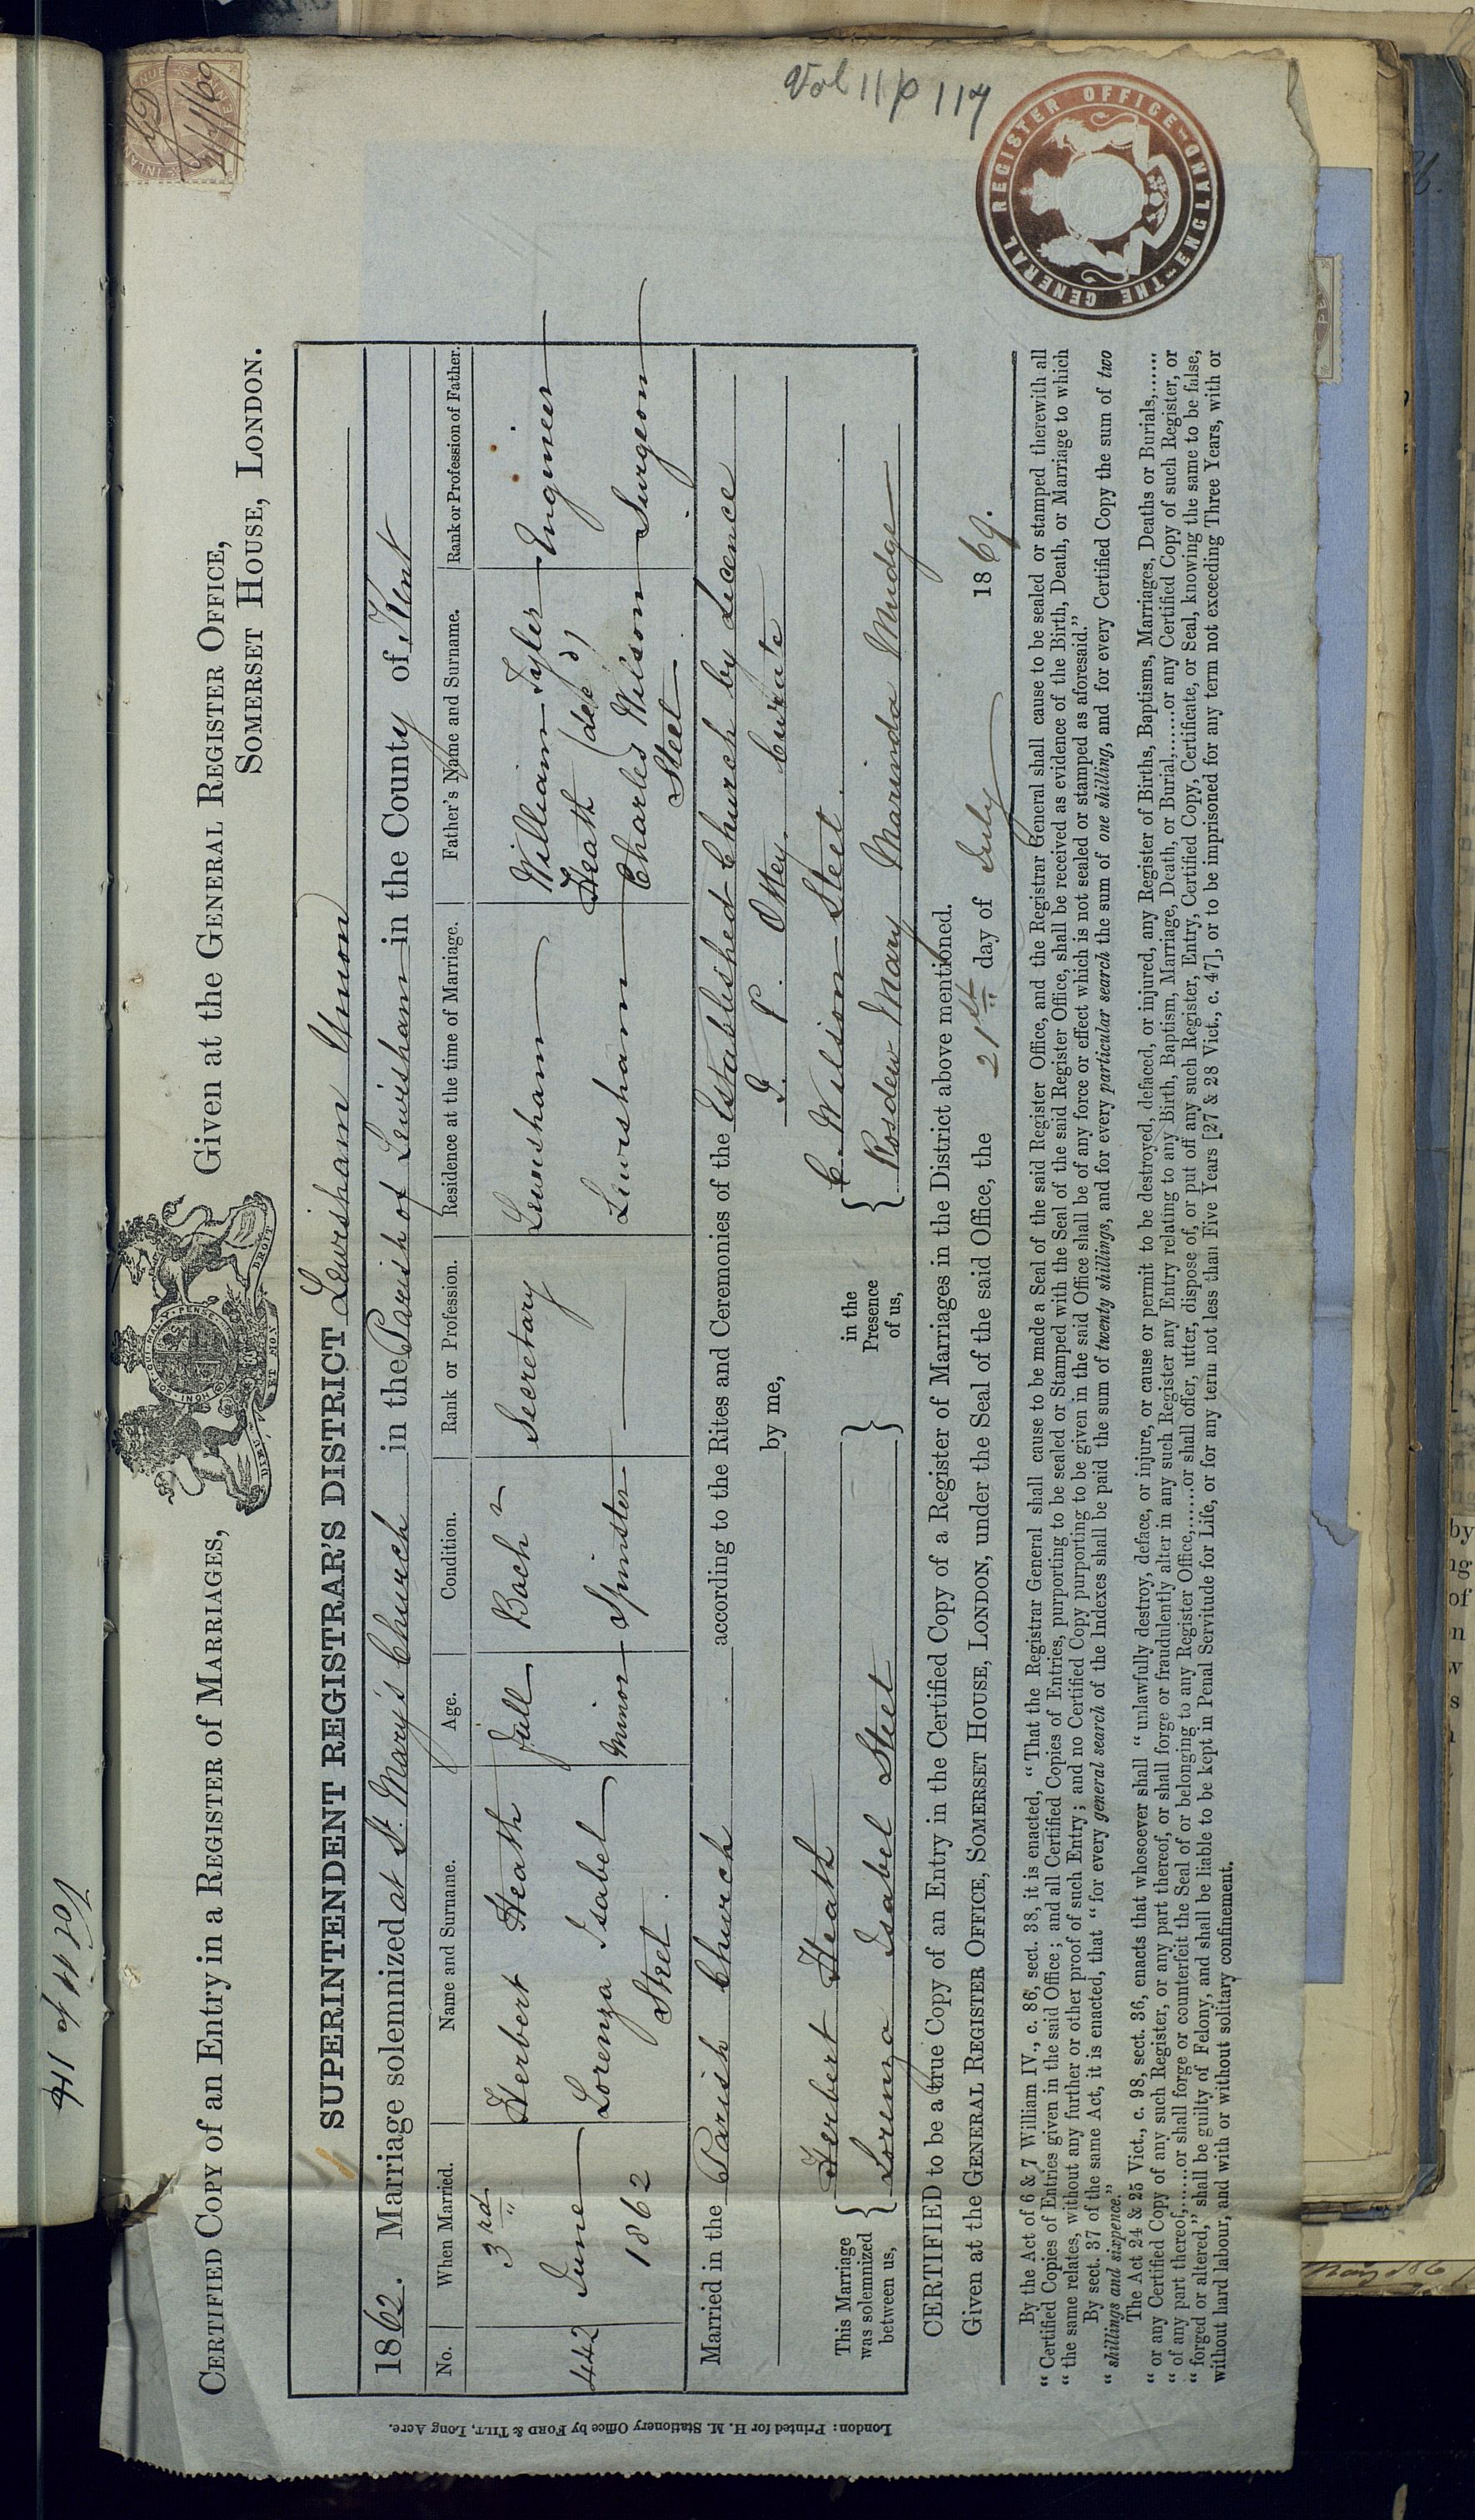 Vol 11 p 117
CERTIFIED COPY of an Entry in a REGISTER of MARRIAGES,
DIEU ET MON DROIT
HONI SOIT QUI MAL Y PENSE
Given at the GENERAL REGISTER OFFICE,
SOMERSET HOUSE, LONDON.
SUPERINTENDENT REGISTRAR'S DISTRICT Lewisham Union
1862. Marriage solemnized at St. Mary's Church in the Parish of Lewisham in the County of Kent
No. When Married. Name and Surname. Age. Condition. Rank or Profession. Residence at the time of Marriage. Father's Name and Surname. Rank or Profession of Father.
442 3rd June 1862 Herbert Heath Full Bachr Secretary Lewisham William Tyler Heath (decd) Engineer
Lorenza Isabel Steel Minor Spinster Lewisham Charles Wilson Steel Surgeon
Married in the Parish Church according to the Rites and Ceremonies of the Established Church by Licence
by me, P. Ottey. Curate
This Marriage was solemnized between us,
Herbert Heath
Lorenza Isabel Steel
in the Presence of us,
C. Wilson Steel.
Rosdew Mary Marinda Mudge
CERTIFIED to be a true Copy of an Entry in the Certified Copy of a Register of Marriages in the District above mentioned.
Given at the GENERAL REGISTER OFFICE, SOMERSET HOUSE, LONDON, under the Seal of the said Office, the 21st day of July 1869.
By the Act of 6 & 7 William IV., c. 86, sect. 38, it is enacted, "That the Registrar General shall cause to be made a Seal of the said Register Office, and the Registrar General shall cause to be sealed or stamped therewith all
"Certified Copies of Entries given in the said Office; and all Certified Copies of Entries, purporting to be sealed or Stamped with the Seal of the said Register Office, shall be received as evidence of the Birth, Death, or Marriage to which
"the same relates, without any further or other proof of such Entry; and no Certified Copy purporting to be given in the said Office shall be of any force or effect which is not sealed or stamped as aforesaid."
By sect. 37 of the same Act, it is enacted, that "for every general search of the Indexes shall be paid the sum of twenty shillings, and for every particular search the sum of one shilling, and for every Certified Copy the sum of two
"shillings and sixpence."
The Act 24 & 25 Vict., c. 98, sect. 36, enacts that whosoever shall "unlawfully destroy, deface, or injure, or cause or permit to be destroyed, defaced, or injured, any Register of Births, Baptisms, Marriages, Deaths or Burials,......
"or any Certified Copy of any such Register, or any part thereof, or shall forge or fraudulently alter in any such Register any Entry relating to any Birth, Baptism, Marriage, Death, or Burial,......or any Certified Copy of such Register, or
"of any part thereof,......or shall forge or counterfeit the Seal of or belonging to any Register Office,......or shall offer, utter, dispose of, or put off any such Register, Entry, Certified Copy, Certificate, or Seal, knowing the same to be false,
"forged or altered," shall be guilty of Felony, and shall be liable to be kept in Penal Servitude for Life, or for any term not less than Five Years [27 & 28 Vict., c. 47], or to be imprisoned for any term not exceeding Three Years, with or
without hard labour, and with or without solitary confinement.
THE GENERAL REGISTER OFFICE ENGLAND
London: Printed for H. M. Stationery Office by FORD & TILT, Long Acre.
Vol 11 p 116